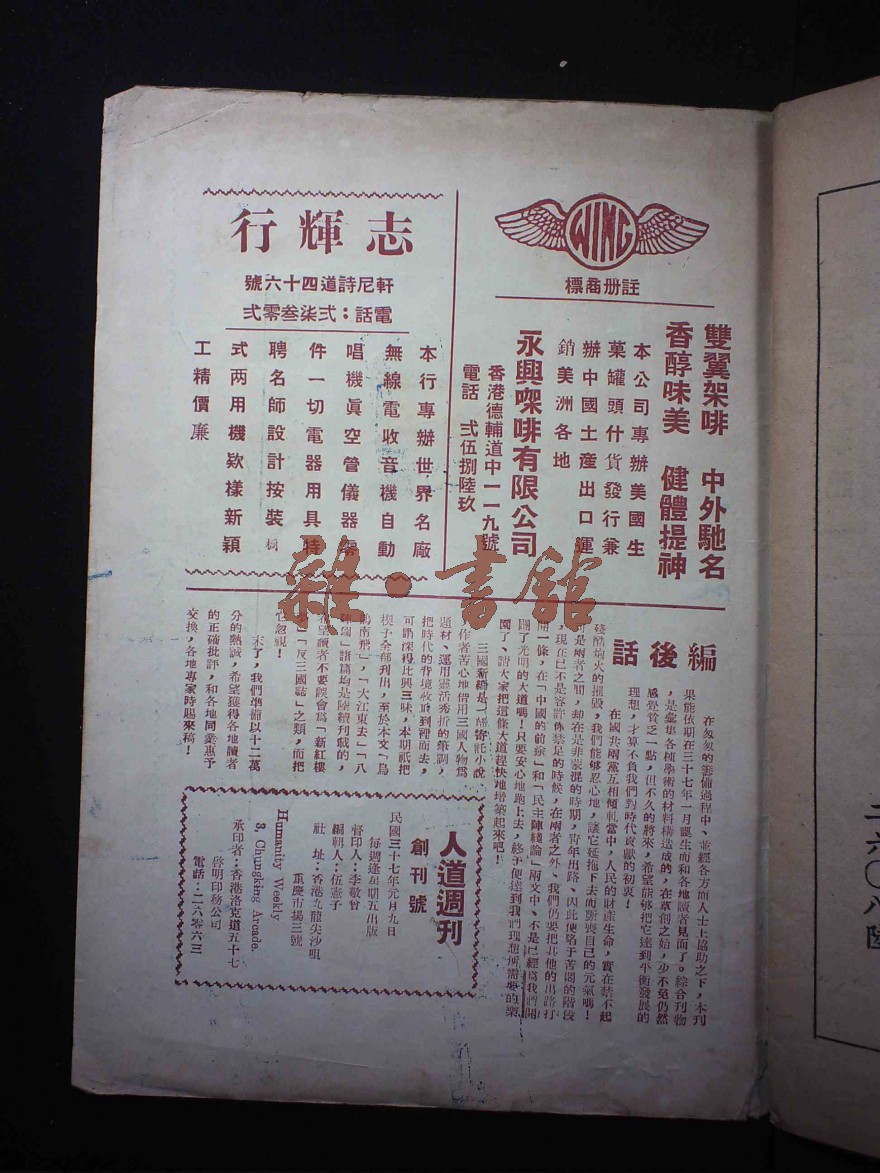 WING
註册商標
雙翼架啡　中外馳名
香醇味美　健體提神
本公司專辦美國生
菓罐頭什貨發行兼
辦中國土產出口運
銷美洲各地
永興㗎啡有限公司
香港德輔道中一一九號
電話　弍伍捌陸玖
志輝行
軒尼詩道四十六號
電話：弍柒叁零弍
本行專辦世界名廠
無線電收音機自動
唱機眞空管儀器零
件一切電器用具特
聘名師設計按裝
式两用機欵樣新穎
工精價廉
編後話
在匆匆的籌備過程中、並經各方面人士上協助之下，本刊
果能依期在三十七年一月誕生而和各地讀者見面了。綜合刊物
，是彙集各種學術的材料構造成的，在草創之始，少不免仍然
感覺貧乏一點，但不久的將來，希望能够把它達到平衡發展的
理想，才算不負我們對時代貢獻的初衷！
在國共兩黨互相傾軋當中，人民的財產生命，實在禁不起
殘酷炮火的摧毀，我們能够忍心地，讓它延拖下去而斲喪自己的元氣嗎！
可是兩者之間，却在是非蒙混的時期，青年出路、因此便陷于苦悶的階段
，現在已不是容許你禁足的時候，在兩者之外、我們仍要把其他的出路打
開一條，在「中國的前途」和「民主陣綫論」兩文中、不是已經爲我們開
闢了光明的大道嗎！只要安心地跑上去，終于便達到我們理想所需要的樂
園了、請大家把這條大道趕快地增築起來吧！
三國新編是一部寄託小說，
作者苦心地借用三國人物爲
題材、運用靈活秀折的筆調，
把時代的背境收取到裡面去，
可謂深得比興三昧，本期祇把
楔子全部刊出，至於本文「烏
鵲南飛」，「大江東去」，「八
陣圖」諸篇均是陸續刊載的，
希望讀者不要誤會爲「新紅樓
夢」「反三國誌」之類，而把
它忽視！
末了，我們準備以十二萬
分的熱誠，希望獲得各地讀者
的正確批評，和各地同業惠予
交換，各地專家時賜來稿！
人道週刊
創刊號
民國三十七年元月九日
每週逢星期五出版
督印人：李敬曾
編輯人：伍憲子
社　址：香港九龍尖沙咀
重慶市場三號
Humanity Weekly
3, Chungking Arcade.
承印者：香港洛克道五十七
啓明印務公司
電話：二六〇六三
雜·書館
二六〇八